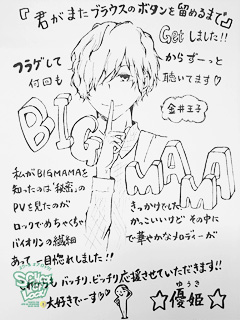 『君がまたブラウスのボタンを留めるまで』
Getしました!!
フラゲして
何回も
からずーっと
聴いてます♡
金井王子
BIG
MAMA
私がBIGMAMAを
知ったのは"秘密"の
PVを見たのが
きっかけでした
ロックでめちゃくちゃ
かっこいいけど その中に
バイオリンの繊細
で華やかなメロディーが
あって 一目惚れしました!!
これからも バッチリ、ビッチリ 応援させていただきます!!
大好きでーす
☆優姫☆
ゆうき
SCHOOL OF LOCK!